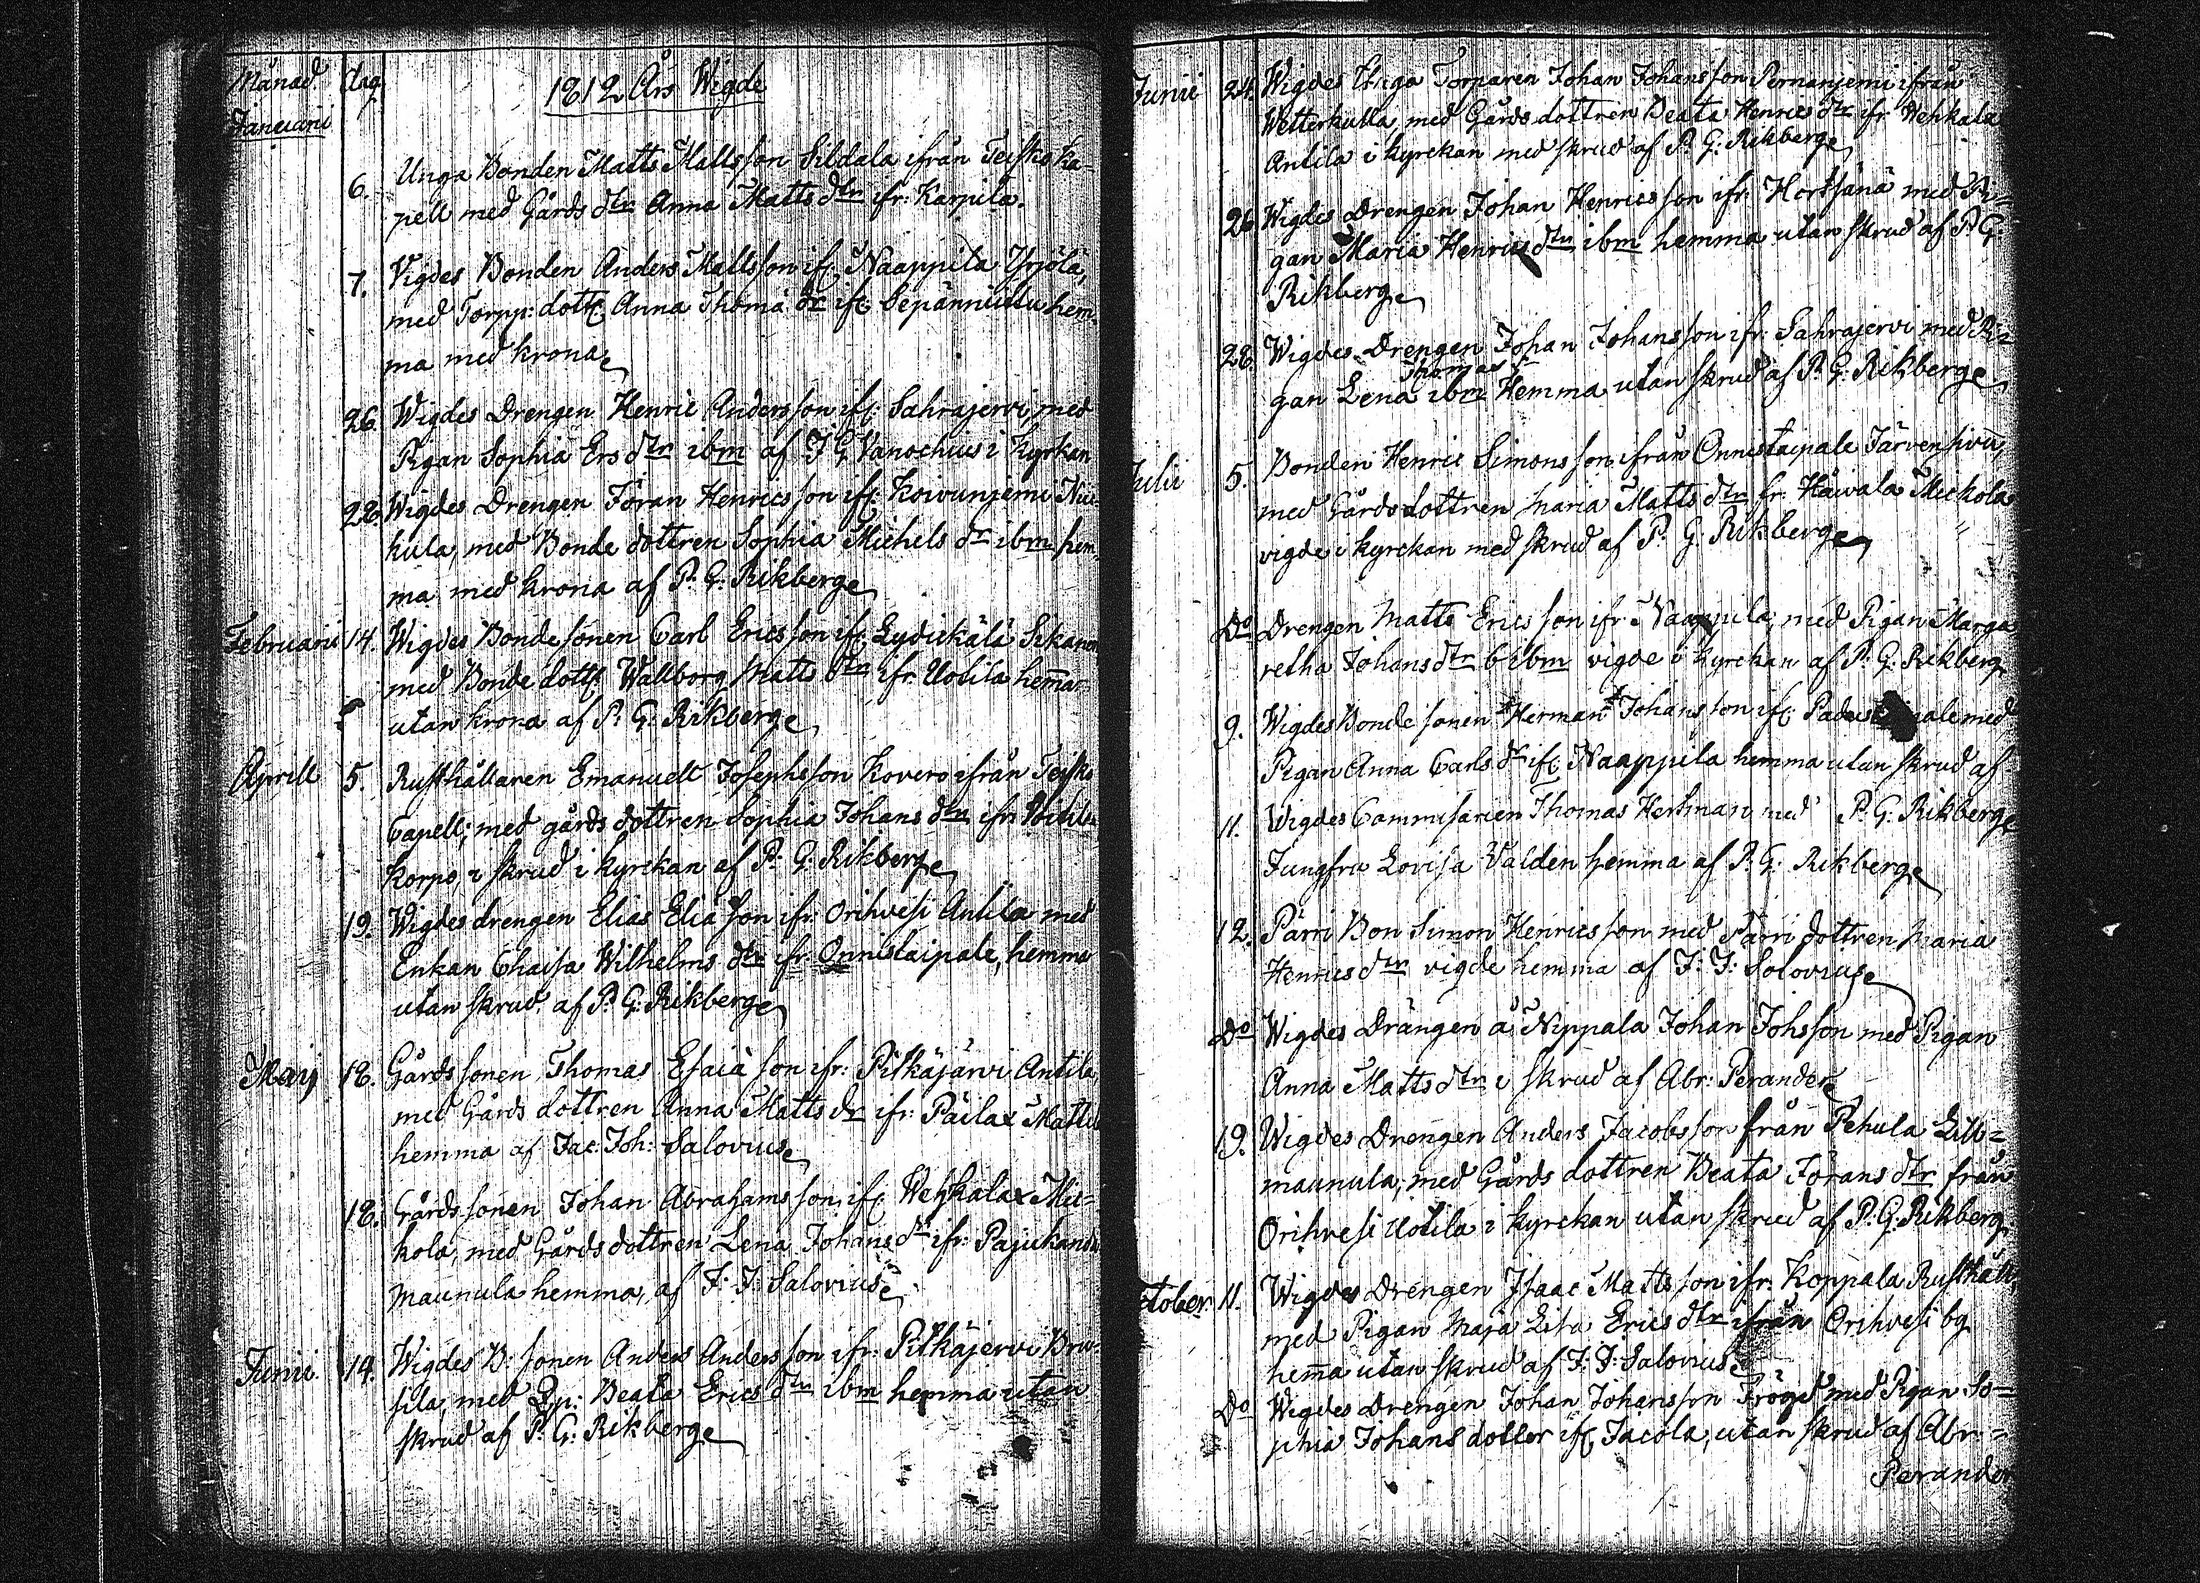 Månad dag 1812 Års Wigde
Januarii
6. Unga Bonden Matts Mattsson Sildala ifrån Teisko ka-
pell med Gårds dtr Anna Matts dtr ifr: Karpila.
7. Vigdes Bonden Anders Mattsson ifr: Naappila Yrjölä,
med Torpp: dottr Anna Thomä dr ifr: Sepänniittu hem-
ma med krona
26. Wigdes Drengen Henric Andersson ifr: Sahrajervi, med
Pigan Sophia Ers dtr ibm af J G Vanochius i Kyrkan
28. Wigdes Drengen Jöran Henricsson ifr: Koivuniemi Nii-
kula, med Bonde dottren Sophia Michels dr ibm hem-
ma med krona af P. G: Rikberg
Februarii 14. Wigdes Bonde sonen Carl Ericsson ifr: Lydickälä Sikanen
med Bonde dottr Wallborg Matts dtr ifr. Uotila hemma
utan krona af P: G: Rikberg
Aprill 5. Rusthållaren Emanuell Josephsson Kovero ifrån Teisko
Capell; med gårds dottren Sophia Johans dtr ifr:
Korpo, i skrud i kyrckan af P: G: Rikberg
19. Wigdes drengen Elias Eliä son ifr: Orihvesi Antila med
Enkan Chaisa Wilhelms dtr ifr: Onnistaipale, hemma
utan skrud af P. G: Rikberg
Maij 18. Gårds sonen Thomas Esaiä son ifr: Pitkäjärvi Antila,
med Gårds dottren Anna Matts dr ifr: Päilax Mattila
hemma af Jac: Joh: Salovius
18. Gårds sonen Johan Abrahamsson ifr: Wehkalax Mic-
kola, med Gårds dottren Lena Johans dr ifr: Pajukanda
Maunula hemma, af J: J: Salovius
Junii. 14. Wigdes B: sonen Anders Andersson ifr: Pitkäjervi Bru-
sila, med Beata Erics dtr ibm hemma utan
skrud af P. G: Rikberg
Junii 24. Wigdes Unga Torparen Johan Johansson Pernanjemi ifrån
Wetterkulla, med Gårds dottren Beata Henrics dtr ifr Wehkala
Antila i kyrckan med skrud af P. G: Rikberg
26. Wigdes Drengen Johan Henricsson ifr: Hortsänä med Pi-
gan Maria Henrics dtr ibm hemma utan skrud af P G:
Rikberg
28. Wigdes Drengen Johan Johansson ifr: Sahrajervi med Pi-
Thomas dr
gan Lena ibm Hemma utan skrud af P. G: Rikberg
Julii 5. Bonden Henric Simonsson ifrån Onnistaipale Järvensivu,
med Gårdsdottren Maria Matts dtr fr. Häivala Mickola
vigde i kyrckan med skrud af P. G: Rikberg
Do Drengen Matts Ericsson ifr: Naappila, med Pigan Marga-
retha Johans dtr ibm vigde i kyrckan af P: G: Rikberg
9. Wigdes Bonde sonen Herman Johansson ifr: med
Pigan Anna Carls dr ifr: Naappila hemma utan skrud af
P. G: Rikberg
11. Wigdes Commisarien Thomas Hertman med
Jungfru Lovisa Valden hemma af P. G: Rikberg
12. Pärri Bon Simon Henricsson med Pärri dottren Maria
Henrics dtr vigde hemma af J: J: Solovius
Do Wigdes Drängen å Nippala Johan Johsson med Pigan
Anna Matts dtr i skrud af Abr: Perander
19. Wigdes Drengen Anders Jacobsson från Pehula Lill-
maunula, med Gårds dottren Beata Jörans dtr från
Orihvesi Uotila i kyrckan utan skrud af P. G. Rikberg
ctober 11. Wigdes Drengen Isaac Mattsson ifr: Koppala Rusthåll,
med Pigan Maja Lisa Erics dtr ifrån Orihvesi by
hemma utan skrud af J: J: Salovius
Do Wigdes Drengen Johan Johansson Fröjd med Pigan So-
phia Johans dotter ifr: Jacola, utan skrud af Abr:
Perander